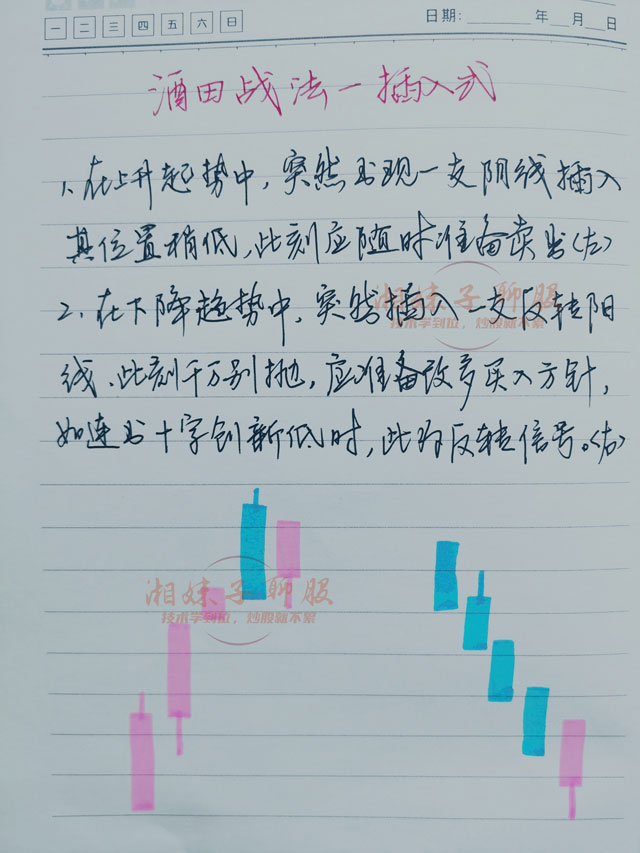 一 二 三 四 五 六 日
日期: 年 月 日
酒田战法一插入式
1、在上升起势中，突然出现一支阴线插入
其位置稍低，此刻应随时准备卖出(左)
2、在下降趋势中，突然插入一支反转阳
线、此刻千万别抛，应准备改多买入方针，
如连出十字创新低时，此为反转信号。(右)
湘妹子聊股
技术学到位，炒股就不累
湘妹子聊股
技术学到位，炒股就不累